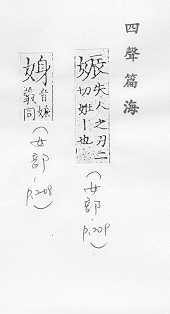 四聲篇海
娠失人之刃二
切妊丨也
(女部, p.209)
音娠
義同
(女部, p.208)